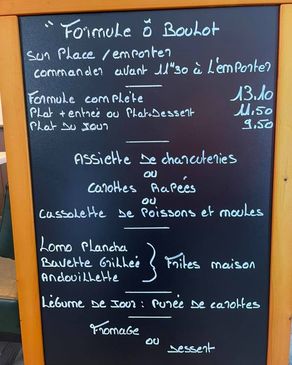 " Formule Ô Boulot
Sur Place / emporter
commander avant 11"30 à l'emporter
Formule complète 13.10
Plat + entrée ou Plat+Dessert 11,50
Plat Du Jour 9.50
Assiette De charcuteries
ou
carottes Rapées
ou
Cassolette de Poissons et moules
Lomo Plancha
Bavette Grillée
Andouillette
} Frites maison
Légume De Jour : Purée De carottes
Fromage
ou
Dessert